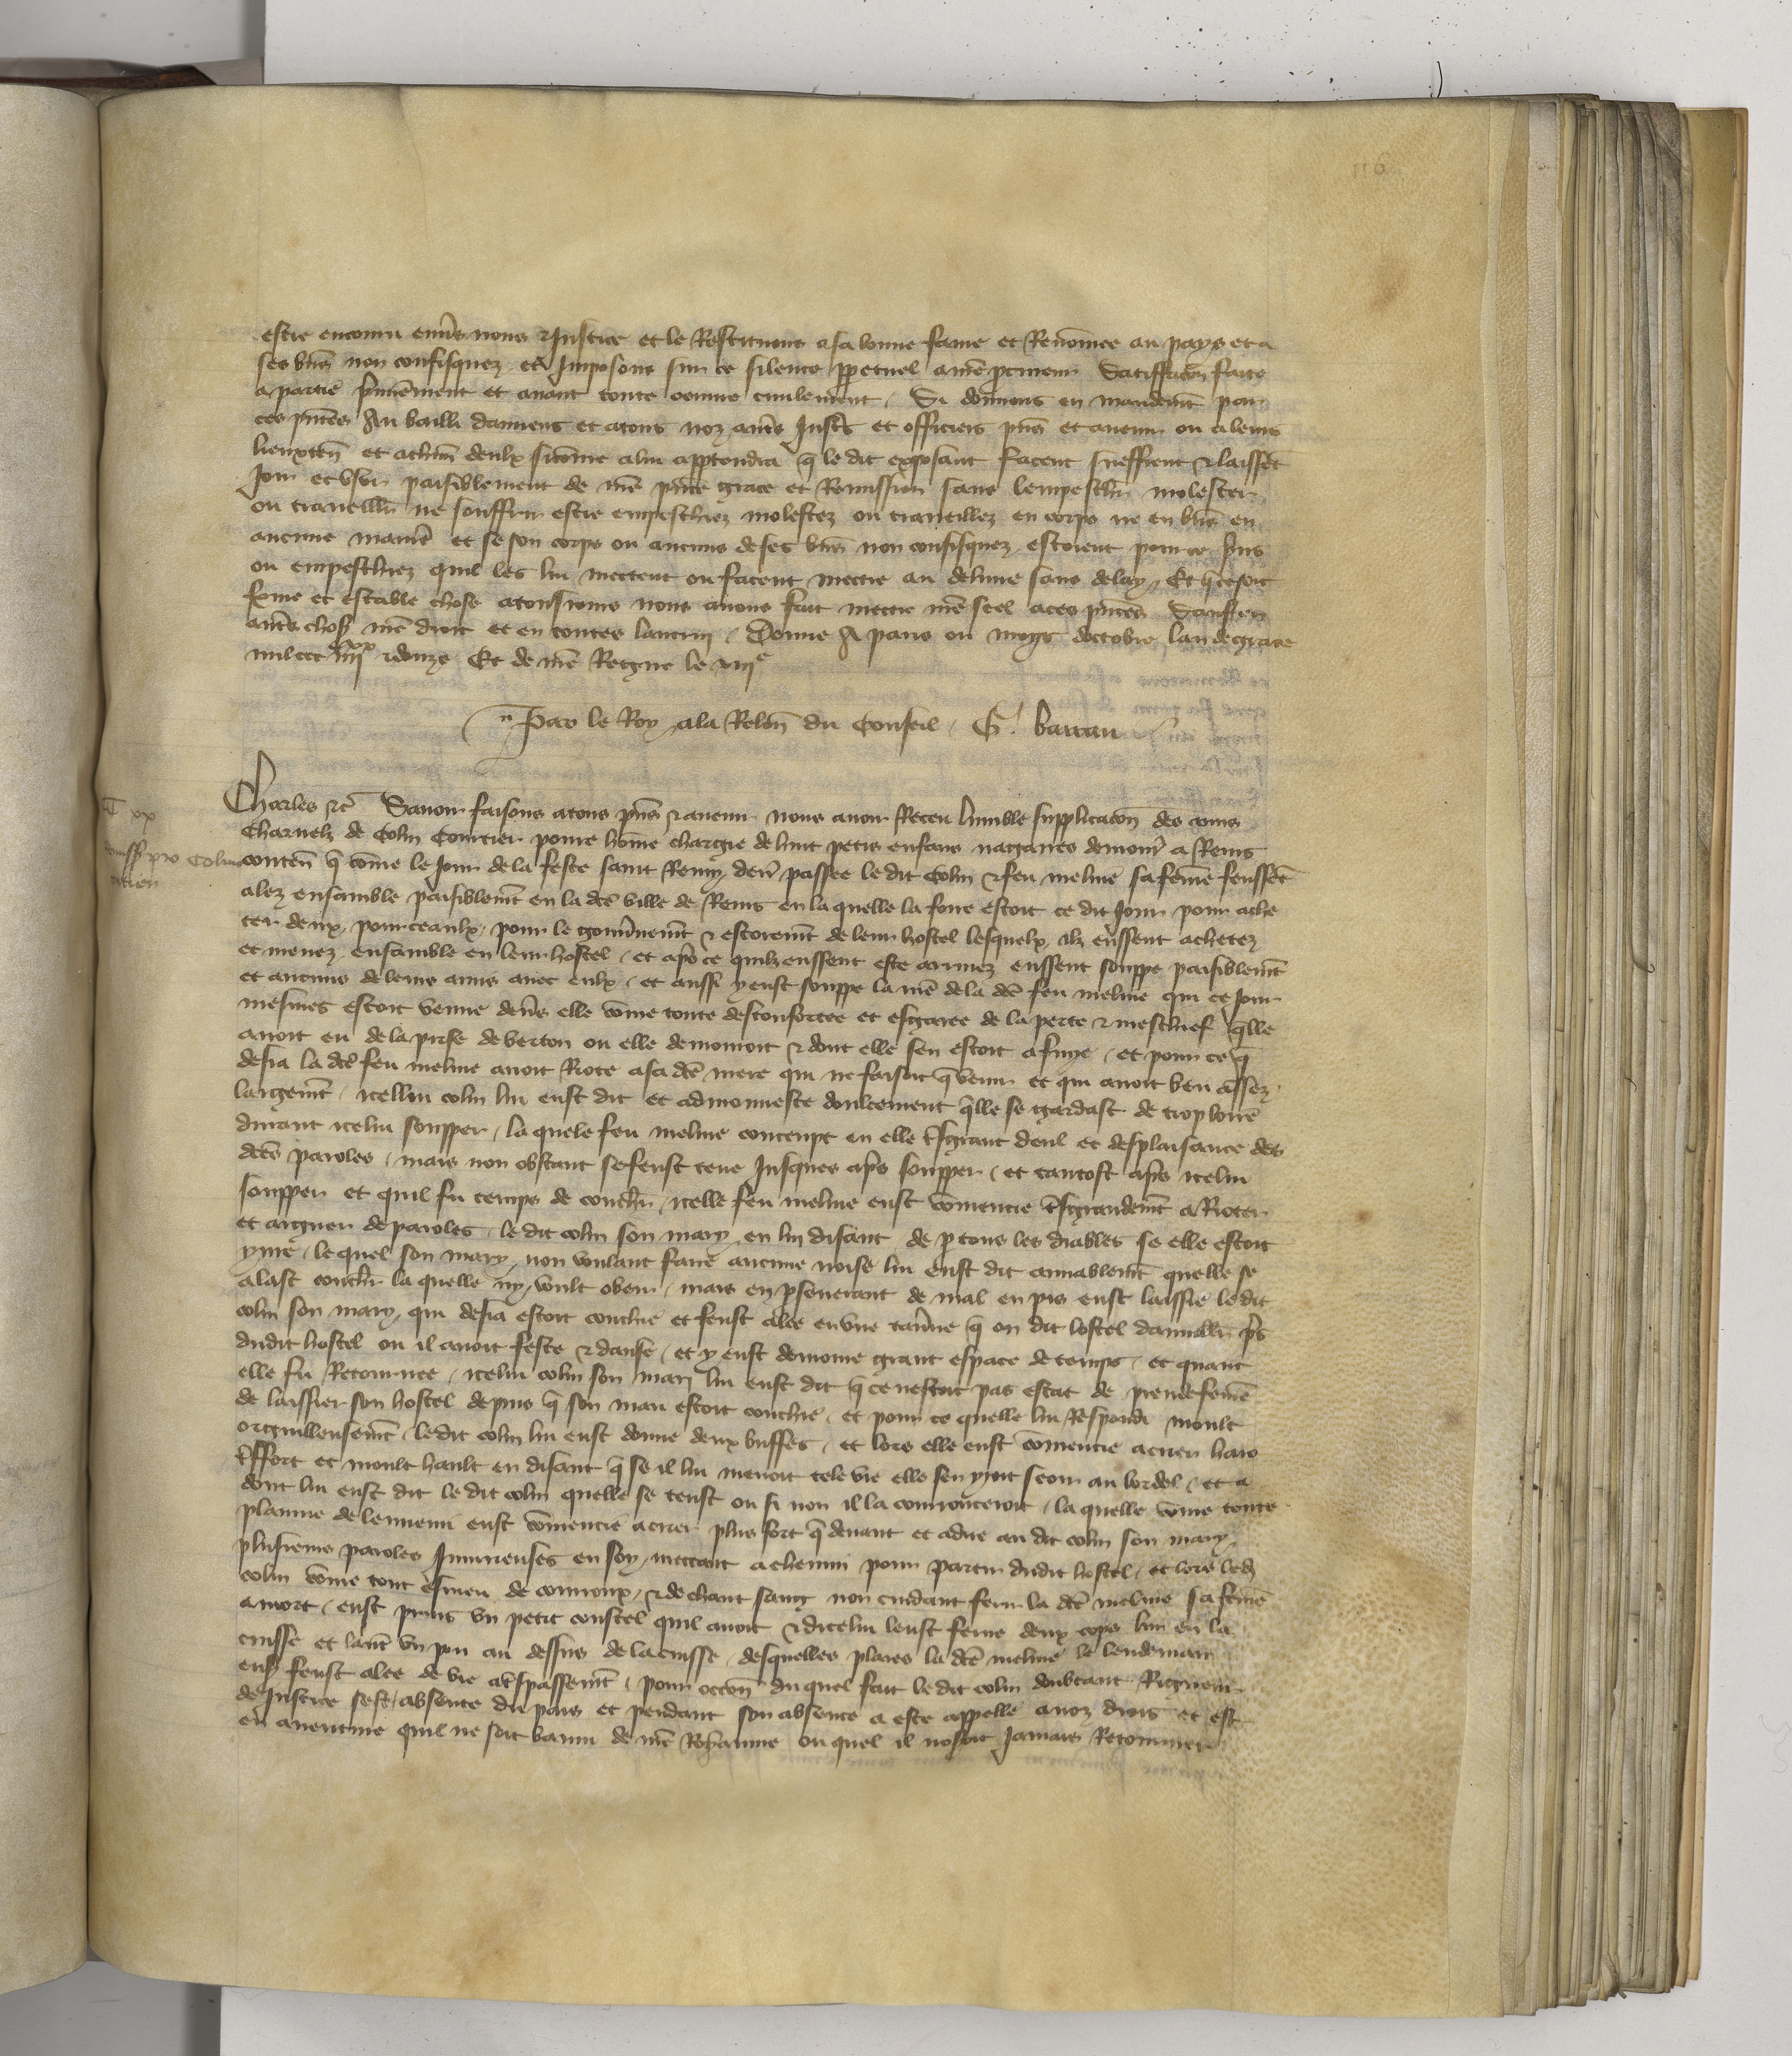 estre encouru envs nous & Justice et le Restituons a sa bonne fame et Renomee au pays et a
ses bns non confisquez et Imposons sur ce silence ppetuel a nre procureur Satiffacon faite
a partie premierement et avant toute oeuvre civilement / Si donnons en mandemt par
ces pntes Au bailli damiens et a tous noz autres Justic et officiers pns et avenir ou a leurs
lieuxten et a chun deulx si come a lui apptendra q le dit exposant facent sueffrent & laissent
Joir et user paisiblement de nre pnte grace et Remission sans lempeschier molester
ou traveillier ne souffrir estre empeschiez molestez ou traveillez en corps ne en bns en
aucune maniere et se son corps ou aucuns de ses bns non confisquez estoient pour ce prins
ou empeschiez quil les lui mettent ou facent mettre au delivre sans delay / Et q ce soit
ferme et estable chose a tousjours nous avons fait mettre nre seel a ces pntes Sauf en
autres choses nre droit et en toutes lautrui / Donne A paris ou moys doctobre lan de grace
mil ccc iiii xx & douze Et de nre Regne le xiii e
Par le Roy a la Relon du Conseil / G. barrau
Charles &c Savoir faisons a tous pns & avenir nous avoir Receu lumble supplicacon des amis
Charnelz de Colin Courtier povre home chargie de huit petis enfans nagaires demour a Reins
conten q come le Jour de la feste saint Remy den passee le dit Colin & feu meline sa feme feussent
alez ensamble paisiblemt en la dce ville de Reins en laquelle la foire estoit ce dit Jour pour ache
ter deux pourceaulx pour le gouvnemt & estoremt de leur hostel lesquelx ilz eussent achetez
et menez ensamble en leur hostel / et aps ce quilz eussent este arrivez eussent souppe paisiblemt
et aucuns de leurs amis avec eulx / et aussi y eust souppe la me de la dce feu meline qui ce Jour
mesmes estoit venue devs elle come toute desconfortee et esgaree de la perte & meschief qlle
avoit eu de la prise de berton ou elle demouroit & dont elle sen estoit afuye / et pour ce q
desja la dce feu meline avoit Riote a sa dce mere qui ne faisoit q venir et qui avoit beu assez
largemt / icellui colin lui eust dit et admonneste doulcement qlle se gardast de trop boire
durant icelui soupper / la quele feu meline conceupt en elle tsgrant deul et desplaisance des
dces paroles / mais non obstant se feust teue Jusques aps soupper / et tantost aps icelui
soupper et quil fu temps de couchier / icelle feu meline eust comencie tsgrandemt a Rioter
et arguer de paroles le dit colin son mary en lui disant de p tous les diables se elle estoit
yvre / le quel son mary non voulant faire aucune noise lui eust dit amiablemt quelle se
alast couchier la quelle ny voult obeir / mais en pseverant de mal en pis eust laissie le dit
colin son mary qui desja estoit couchie et feust alee en une taverne q on dit lostel pres
dudit hostel ou il avoit feste & danse / et y eust demoure grant espace de temps / et quant
elle fu Retournee / icelui colin son mari lui eust dit q ce nestoit pas estat de preudefeme
de laissier son hostel depuis q son mari estoit couchie / et pour ce quelle lui Respondi moult
orguilleusemt / ledit colin lui eust donne deux buffes / et lors elle eust comencie a crier haro
tsfort et moult hault en disant q se il lui menoit tele vie elle sen yroit seoir au bordel / et a
dont lui eust dit le dit colin quelle se teust ou si non il la courrouceroit / la quelle come toute
plainne de lennemi eust comencie a crier plus fort q devant et a dire au dit colin son mary
plusieurs paroles Injurieuses en soy mettant a chemin pour partir dudit hostel / et lors ledit
colin come tout esmeu de courroux / & de chaut sang non cuidant ferir la dce meline sa feme
a mort / eust prins un petit coustel quil avoit & dicelui leust ferue deux cops lun en la
cuisse et laut un pou au dessus de la cuisse / desquelles plaies la dce meline le lendemain
ens feust alee de vie a tspassemt / pour occon du quel fait le dit colin doubtant Rigueur
de Justice sest absente du pais et pendant son absence a este appelle a noz drois et est
en aventure quil ne soit banni de nre Royaume ou quel il noseroit Jamais Retourner